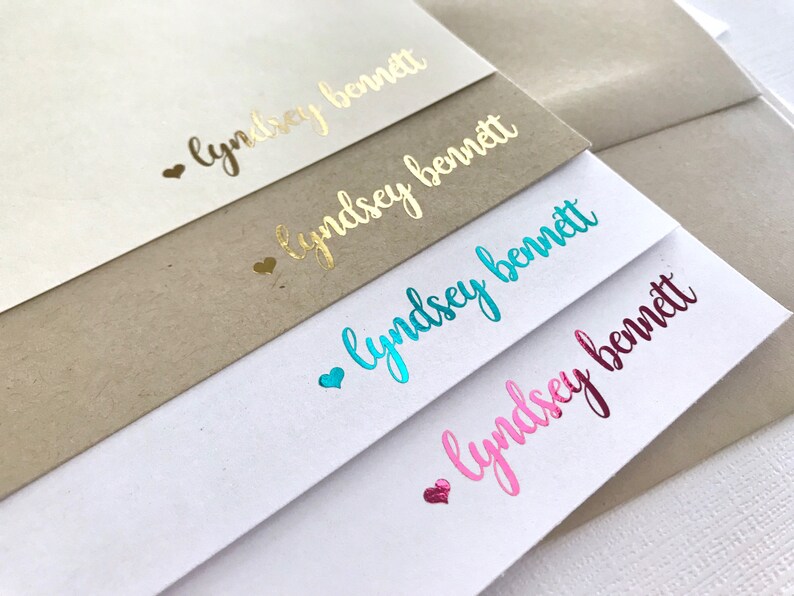 ♥ lyndsey bennett
♥ lyndsey bennett
♥ lyndsey bennett
♥ lyndsey bennett